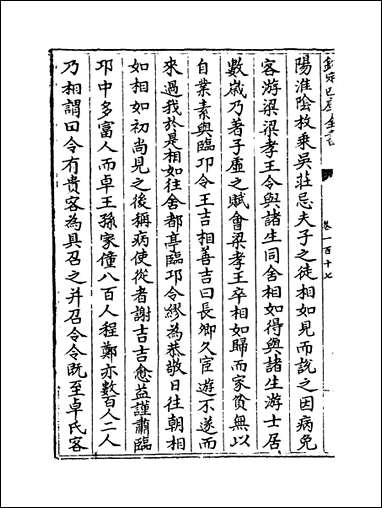 欽定四庫全書
卷一百十七
陽淮陰枚乗吳莊忌夫子之徒相如見而説之因病免
客游梁梁孝王令與諸生同舍相如得與諸生游士居
數嵗乃著子虚之賦會梁孝王卒相如歸而家貧無以
自業素與臨卭令王吉相善吉曰長卿久宦遊不遂而
來過我於是相如往舍都亭臨卭令繆為恭敬日往朝相
如相如初尚見之後稱病使從者謝吉吉愈益謹肅臨
卭中多富人而卓王孫家僮八百人程鄭亦數百人二人
乃相謂曰令有貴客為具召之并召令令既至卓氏客